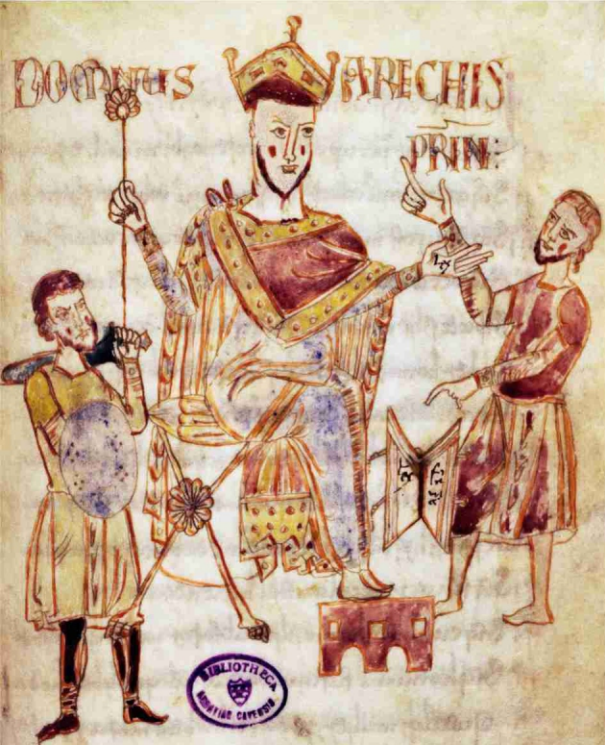 DOMNUS ARECHIS
PRIN:
BIBLIOTHECA
ABBATIAE CAVENSIS